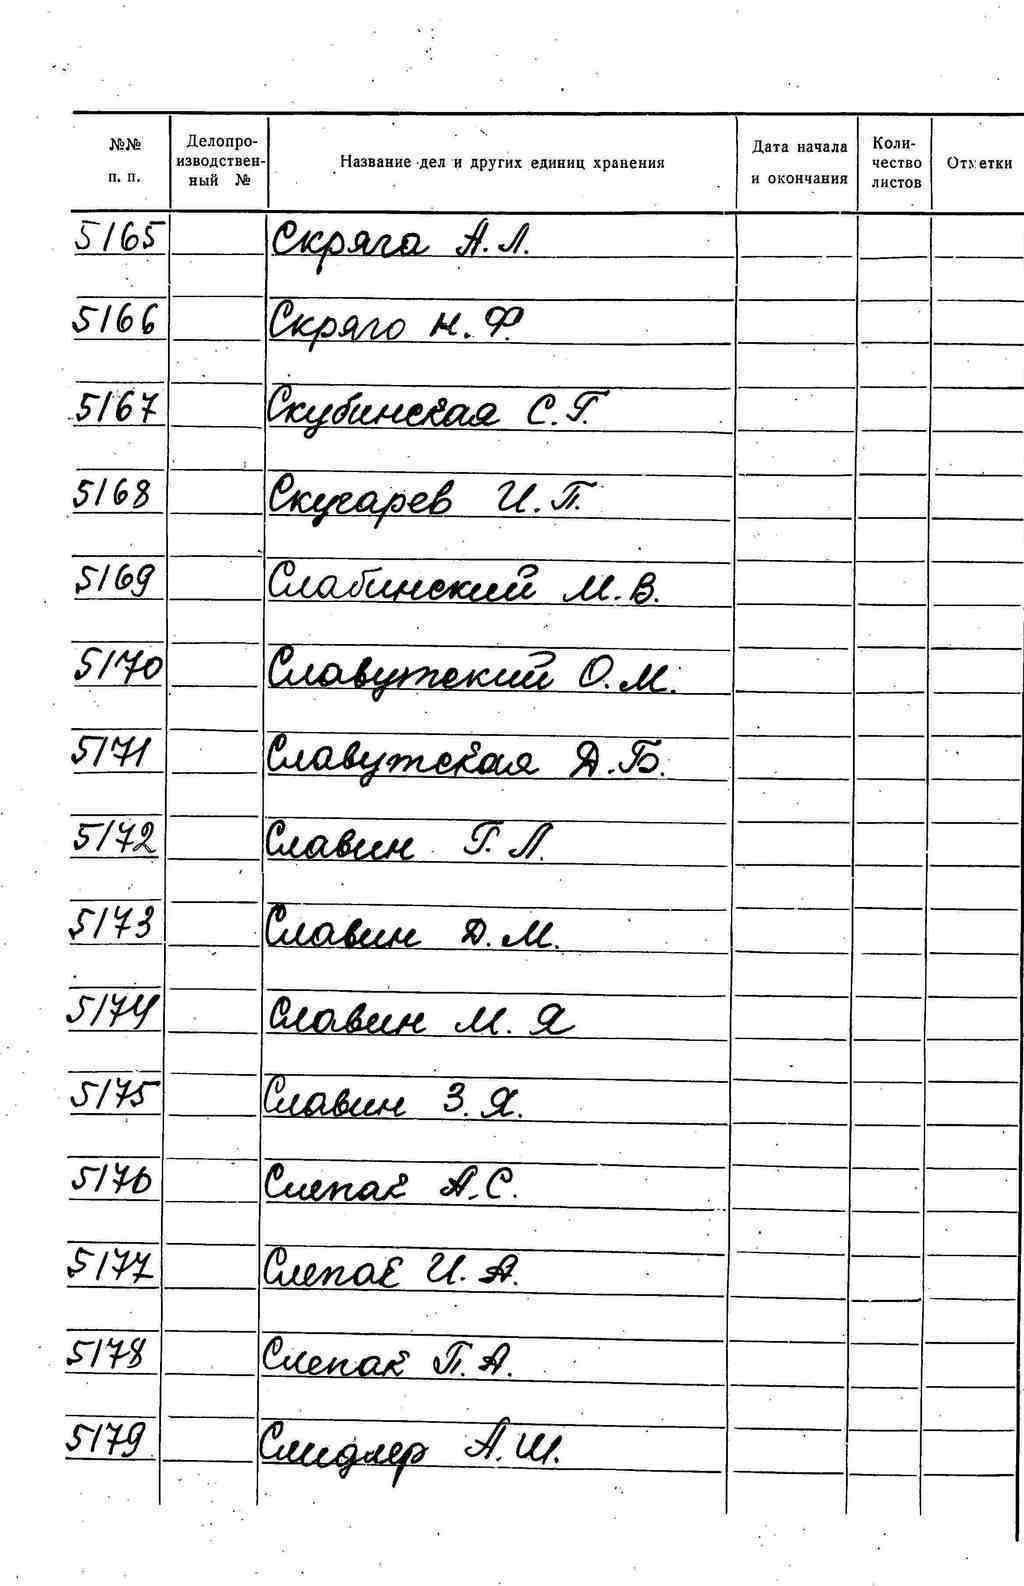 №№ п. п. Делопроизводственный № Название дел и других единиц хранения Дата начала и окончания Количество листов Отметки
5165 Скряга А. Л.
5166 Скряго Н. Ф.
5167 Скубинская С. Г.
5168 Скучарев И. П.
5169 Слабинский М. В.
5170 Славутский О. М.
5171 Славутская Д. Б.
5172 Славин Г. Л.
5173 Славин Д. М.
5174 Славин М. Я
5175 Славин З. Я.
5176 Слепак А. С.
5177 Слепак И. А.
5178 Слепак П. А.
5179 Слидлер А. Ш.